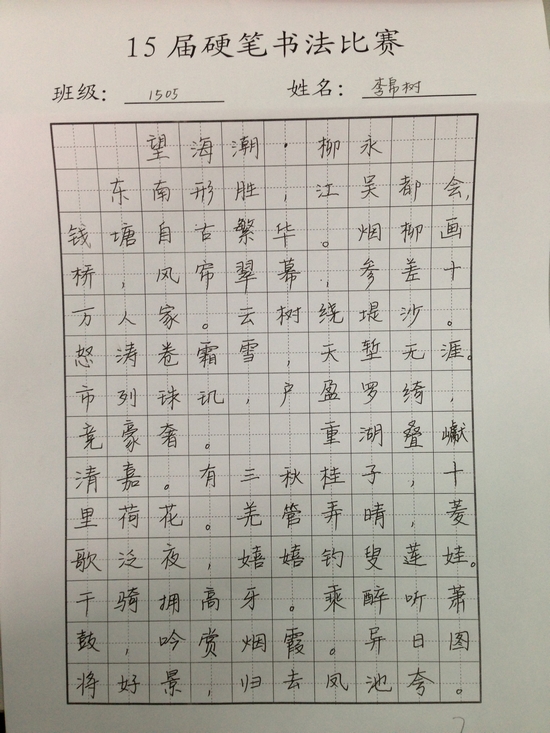 15届硬笔书法比赛
班级: 1505 姓名: 李帛树
望海潮·柳永
东南形胜,江吴都会,
钱塘自古繁华。烟柳画
桥,风帘翠幕,参差十
万人家。云树绕堤沙。
怒涛卷霜雪,天堑无涯。
市列珠玑,户盈罗绮,
竞豪奢。 重湖叠巘
清嘉。有三秋桂子,十
里荷花。羌管弄晴,菱
歌泛夜,嬉嬉钓叟莲娃。
千骑拥高牙。乘醉听萧
鼓,吟赏烟霞。异日图
将好景,归去凤池夸。